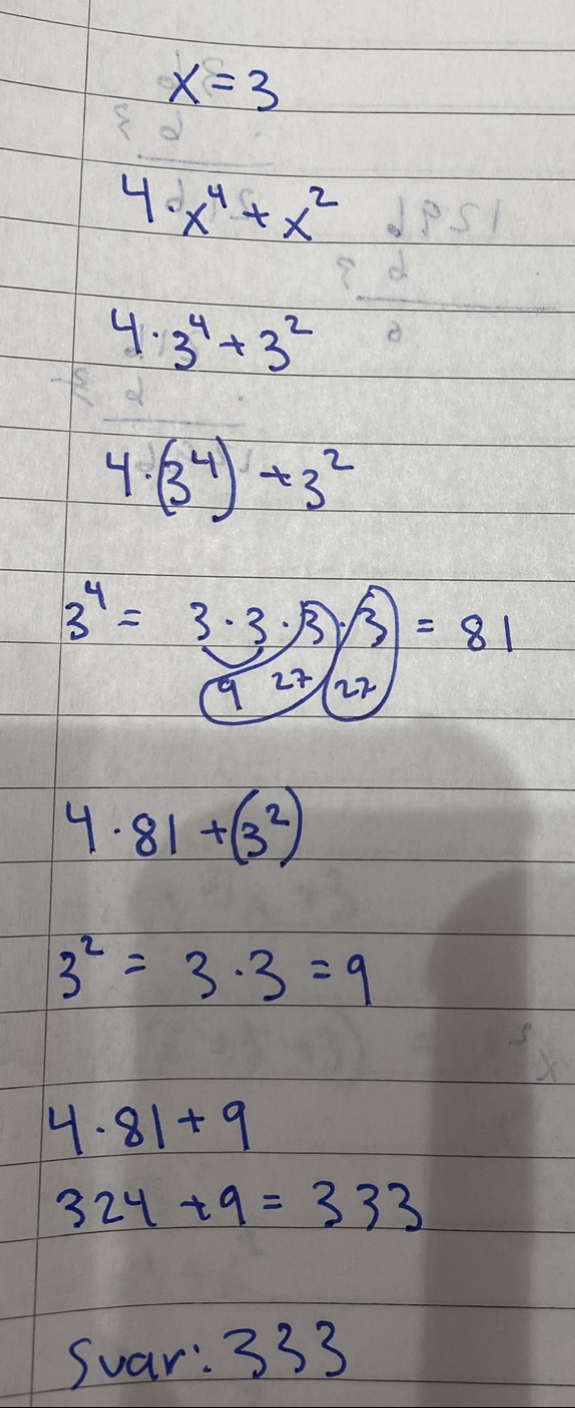 x = 3
4 · x⁴ + x²
4 · 3⁴ + 3²
4 · (3⁴) + 3²
3⁴ = 3 · 3 · 3 · 3 = 81
9 27 27
4 · 81 + (3²)
3² = 3 · 3 = 9
4 · 81 + 9
324 + 9 = 333
Svar: 333